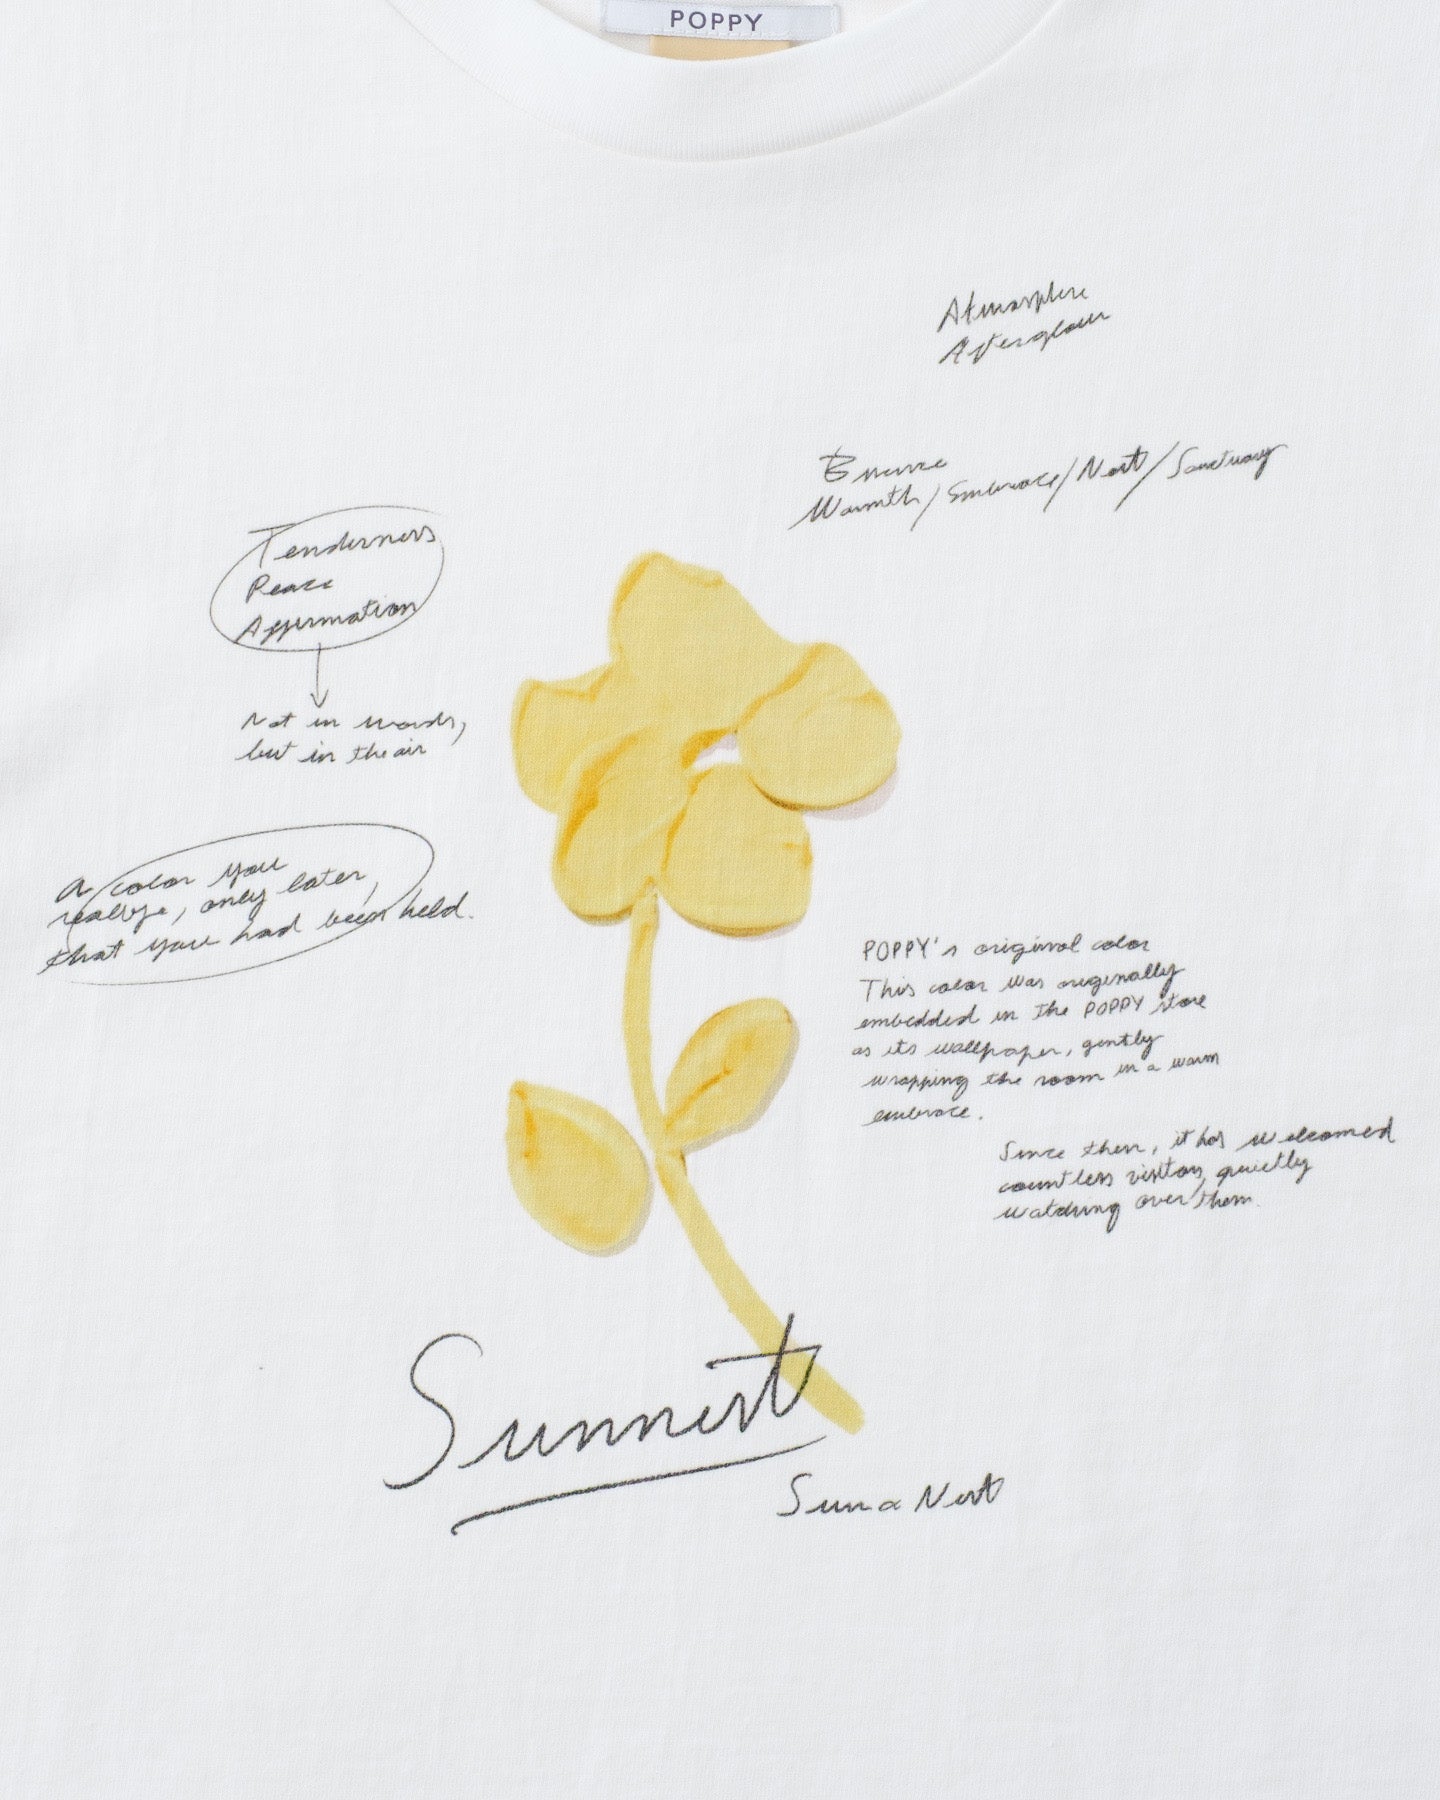 POPPY
Atmosphere
Afterglow
Warmth / Embrace / Nest / Sanctuary
Tenderness
Peace
Affirmation
Not in words,
but in the air
A color you
realize, only later,
that you had been held.
POPPY's original color
This color was originally
embedded in the POPPY store
as its wallpaper, gently
wrapping the room in a warm
embrace.
Since then, it has welcomed
countless visitors, quietly
watching over them.
Sunnest
Sun a Nest